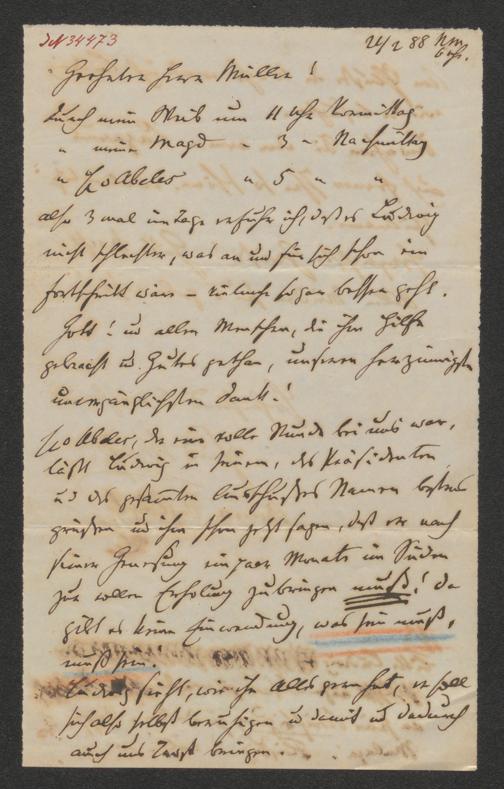 JN 34473
24/2 88 Nm.
6 Uhr.
Geehrter Herr Müller!
Durch mein Weib um 11 Uhr Vormittag
" meine Magd " 3 " Nachmittag
" Abeles " 5 " "
also 3 mal im Tage erfuhr ich, daß es Ludwig
nicht schlechter, was an und für sich schon ein
Fortschritt wäre – vielmehr sogar besser geht.
Gott! u allen Menschen, die ihm Hilfe
gebracht u. Gutes gethan, unseren herzinnigsten
unvergänglichsten Dank!
Abeles, der eine volle Stunde bei uns war,
läßt Ludwig in seinem, des Präsidenten
und des gesammten Ausschußes Namen bestens
grüßen u ihm schon jetzt sagen, daß er nach
seiner Genesung ein paar Monate im Süden
zur vollen Erholung zubringen muß! da
gibt es keine Einwendung, was sein muß,
muß sein.
Ludwig sieht, wie ihn alles gern hat, er soll
sich also selbst beruhigen u damit u dadurch
auch uns Trost bringen.